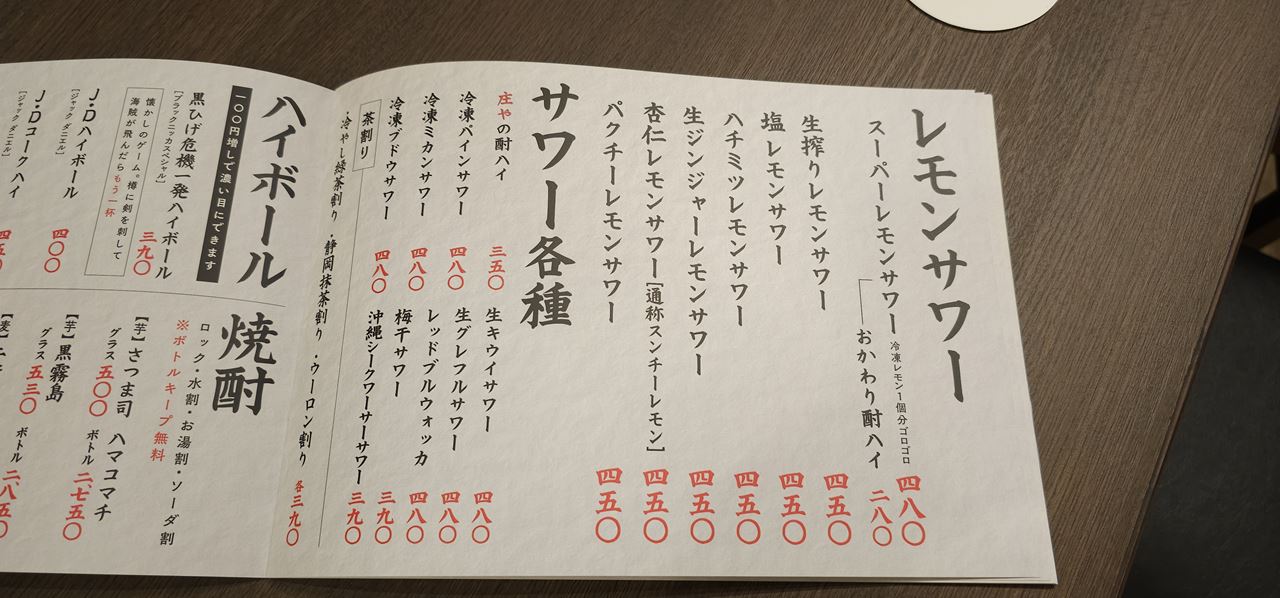 レモンサワー
スーパーレモンサワー 冷凍レモン1個分ゴロゴロ 四八〇
おかわり酎ハイ 二八〇
生搾りレモンサワー 四五〇
塩レモンサワー 四五〇
ハチミツレモンサワー 四五〇
生ジンジャーレモンサワー 四五〇
杏仁レモンサワー[通称スンチーレモン] 四五〇
パクチーレモンサワー 四五〇
サワー各種
庄やの酎ハイ 三五〇
冷凍パインサワー 四八〇
冷凍ミカンサワー 四八〇
冷凍ブドウサワー 四八〇
生キウイサワー 四八〇
生グレフルサワー 四八〇
レッドブルウォッカ 四八〇
梅干サワー 三九〇
沖縄シークワーサーサワー 三九〇
茶割り
冷やし緑茶割り・静岡抹茶割り・ウーロン割り 各三九〇
ハイボール
一〇〇円増しで濃い目にできます
黒ひげ危機一発ハイボール 三九〇
[ブラックニッカスペシャル]
懐かしのゲーム。樽に剣を刺して
海賊が飛んだらもう一杯
J・Dハイボール 四〇〇
[ジャック ダニエル]
J・Dコークハイ 四五〇
[ジャック ダニエル]
焼酎
ロック・水割・お湯割・ソーダ割
※ボトルキープ無料
【芋】さつま司 ハマコマチ
グラス 五〇〇 ボトル 二、七五〇
【芋】黒霧島
グラス 五三〇 ボトル 二、八五〇